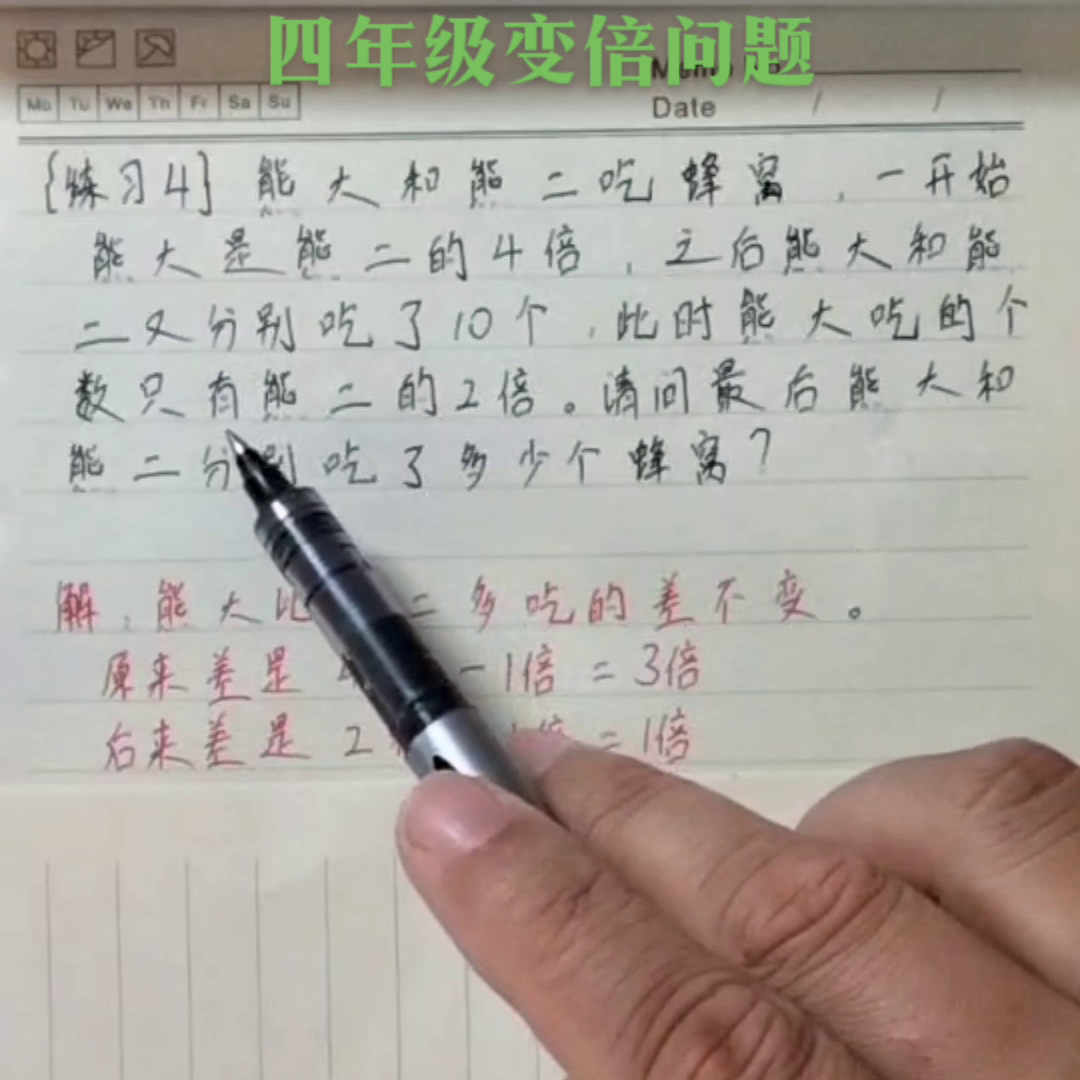 四年级变倍问题
Mo Tu We Th Fr Sa Su
Date / /
{练习4} 熊大和熊二吃蜂窝，一开始
熊大是熊二的4倍，之后熊大和熊
二又分别吃了10个，此时熊大吃的个
数只有熊二的2倍。请问最后熊大和
熊二分别吃了多少个蜂窝？
解：熊大比 二多吃的差不变。
原来差是4 -1倍=3倍
后来差是2 倍=1倍